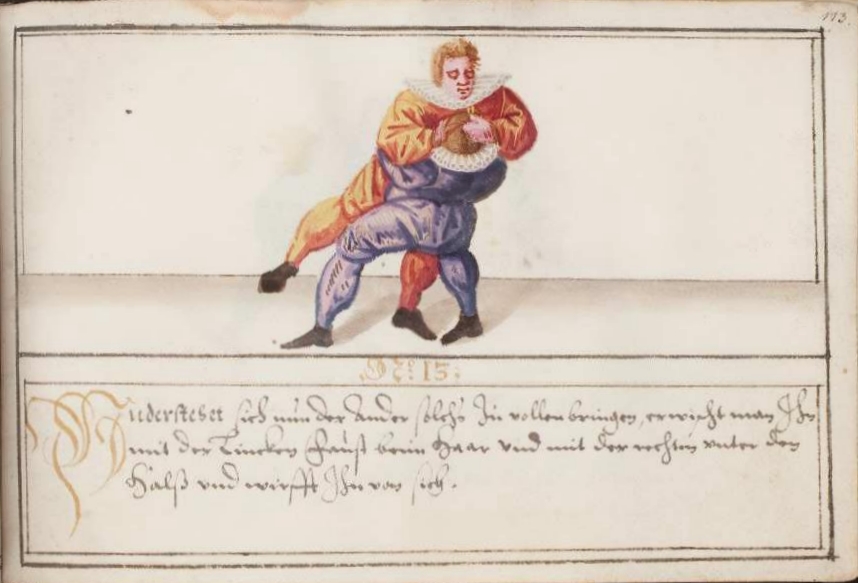 173.
No: 15:
Understehet sich nun der Ander solchs Zu vollenbringen, erwischt man Ihn
mit der Lincken Faust beim Haar vnd mit der rechten vnter den
Halß vnd wirfft Ihn von sich.